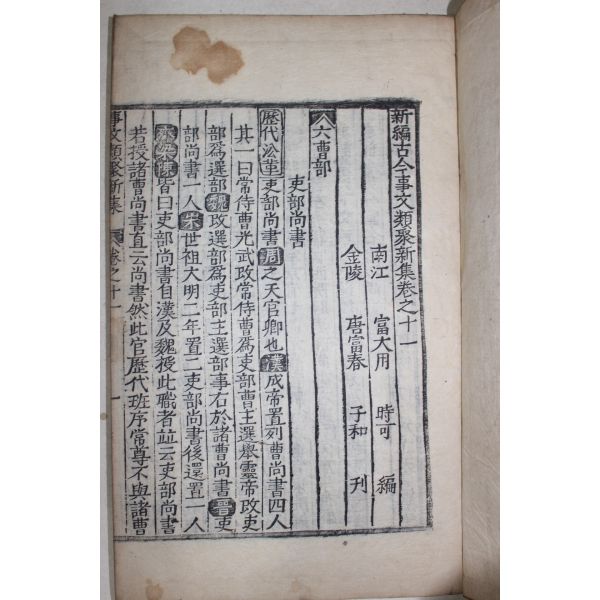 新編古今事文類聚新集卷之十一
南江 富大用 時可 編
金陵 唐富春 子和 刊
六曹部
吏部尚書
歷代沿革吏部尚書周之天官卿也漢成帝置列曹尚書四人
其一曰常侍曹光武改常侍曹爲吏部曹主選舉靈帝改吏
部爲選部魏改選部爲吏部主選部事右於諸曹尚書晉吏
部尚書一人宋世祖大明二年置二吏部尚書後還置一人
齊梁陳皆曰吏部尚書自漢及魏授此職者並云吏部尚書
若授諸曹尚書直云尚書然此官歷代班序常尊不與諸曹
事文類聚新集 卷之十一 一